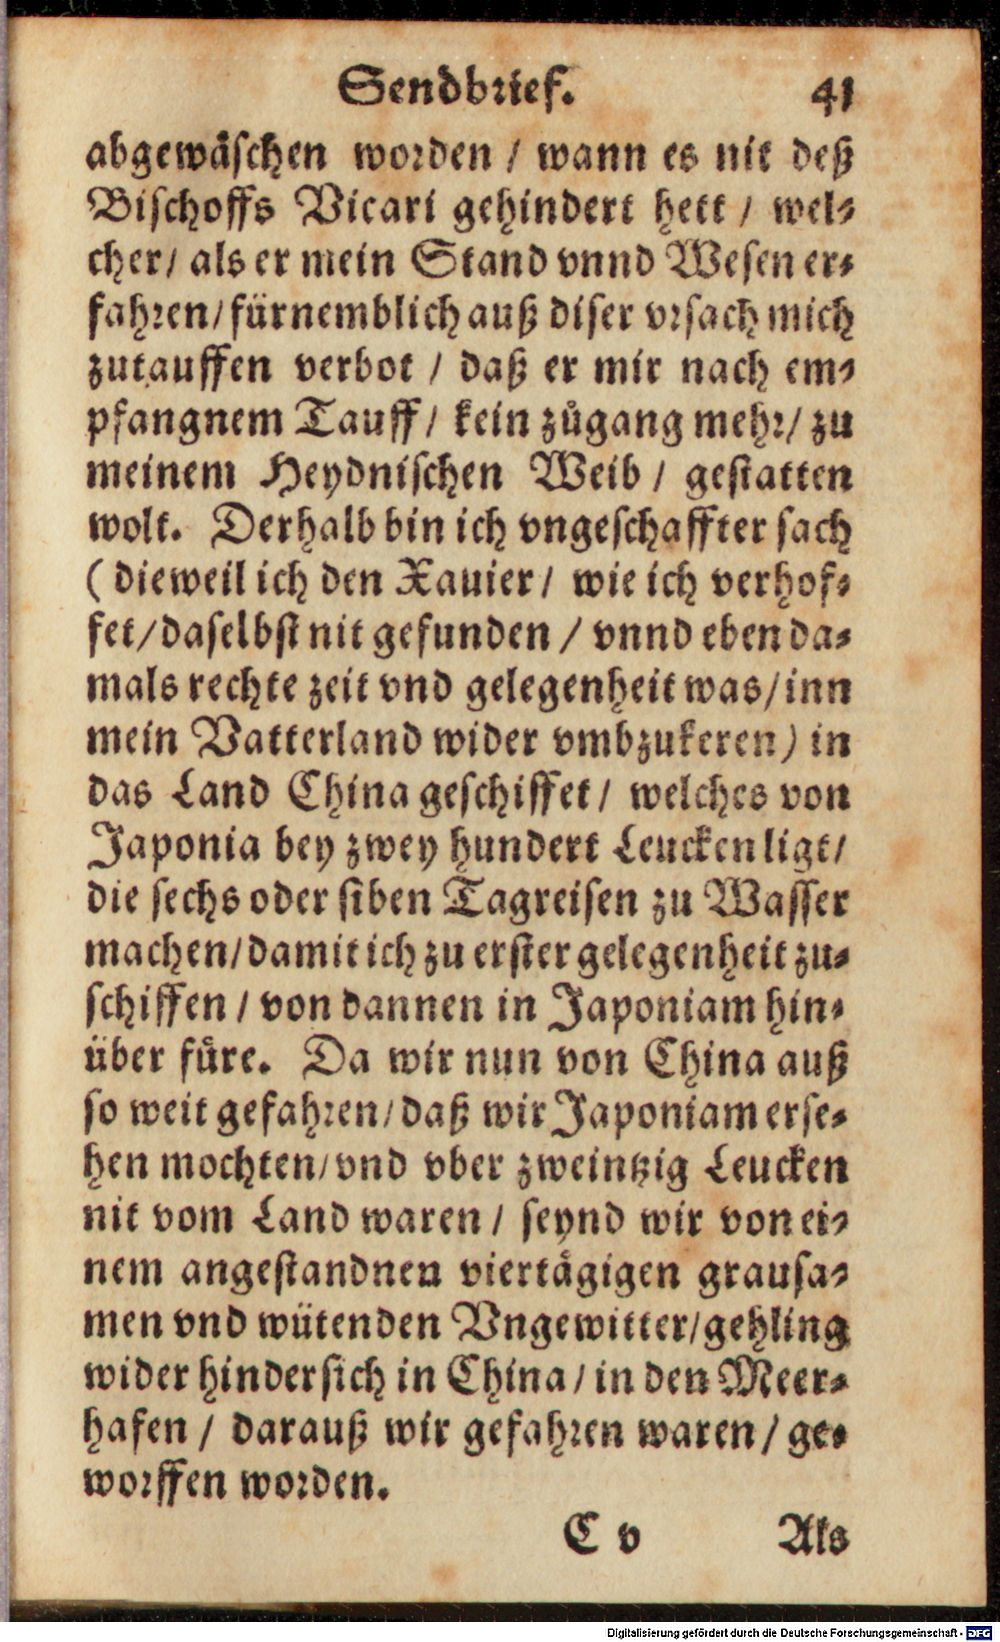 Sendbrief. 41
abgewåschen worden / wann es nit deß
Bischoffs Vicari gehindert hett / wel-
cher / als er mein Stand vnnd Wesen er-
fahren / fürnemblich auß diser vrsach mich
zutauffen verbot / daß er mir nach em-
pfangnem Tauff / kein zůgang mehr / zu
meinem Heydnischen Weib / gestatten
wolt. Derhalb bin ich vngeschaffter sach
( dieweil ich den Xauier / wie ich verhof-
fet / daselbst nit gefunden / vnnd eben da-
mals rechte zeit vnd gelegenheit was / inn
mein Vatterland wider vmbzukeren) in
das Land China geschiffet / welches von
Japonia bey zwey hundert Leucken ligt /
die sechs oder siben Tagreisen zu Wasser
machen / damit ich zu erster gelegenheit zu-
schiffen / von dannen in Japoniam hin-
über fůre. Da wir nun von China auß
so weit gefahren / daß wir Japoniam erse-
hen mochten / vnd vber zweintzig Leucken
nit vom Land waren / seynd wir von ei-
nem angestandnen viertågigen grausa-
men vnd wütenden Vngewitter / gehling
wider hindersich in China / in den Meer-
hafen / darauß wir gefahren waren / ge-
worffen worden.
C v Als
Digitalisierung gefördert durch die Deutsche Forschungsgemeinschaft - DFG